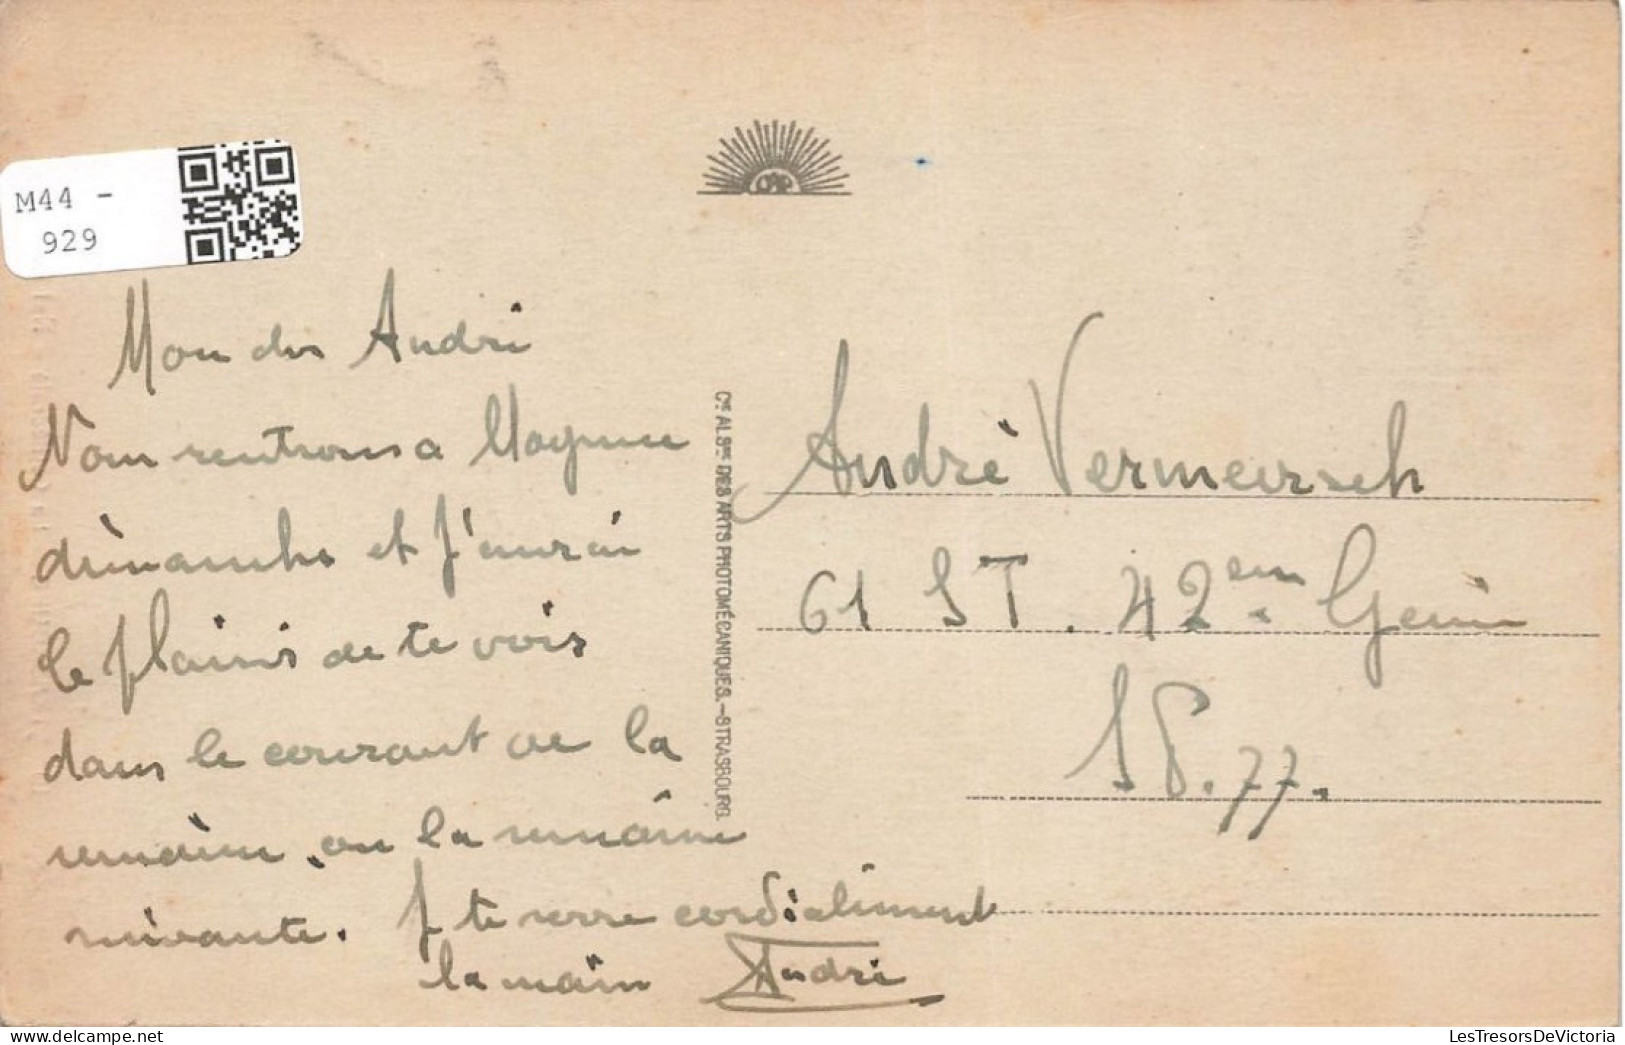 M44 -
929
Mon cher André
Nous rentrons a Mayence
dimanche et j'aurai
le plaisir de te voir
dans le courant de la
semaine, ou la semaine
suivante. Je te serre cordialement
la main André
Cie ALSne DES ARTS PHOTOMÉCANIQUES. - STRASBOURG.
André Vermeersch
61 ST. 42em Genie
SP. 77.
LesTresorsDeVictoria